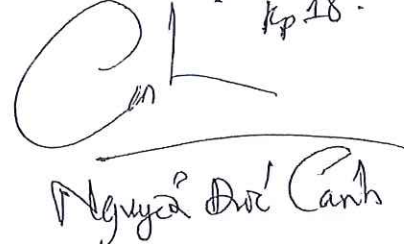 Kp 18.
Nguyễn Đức Cảnh